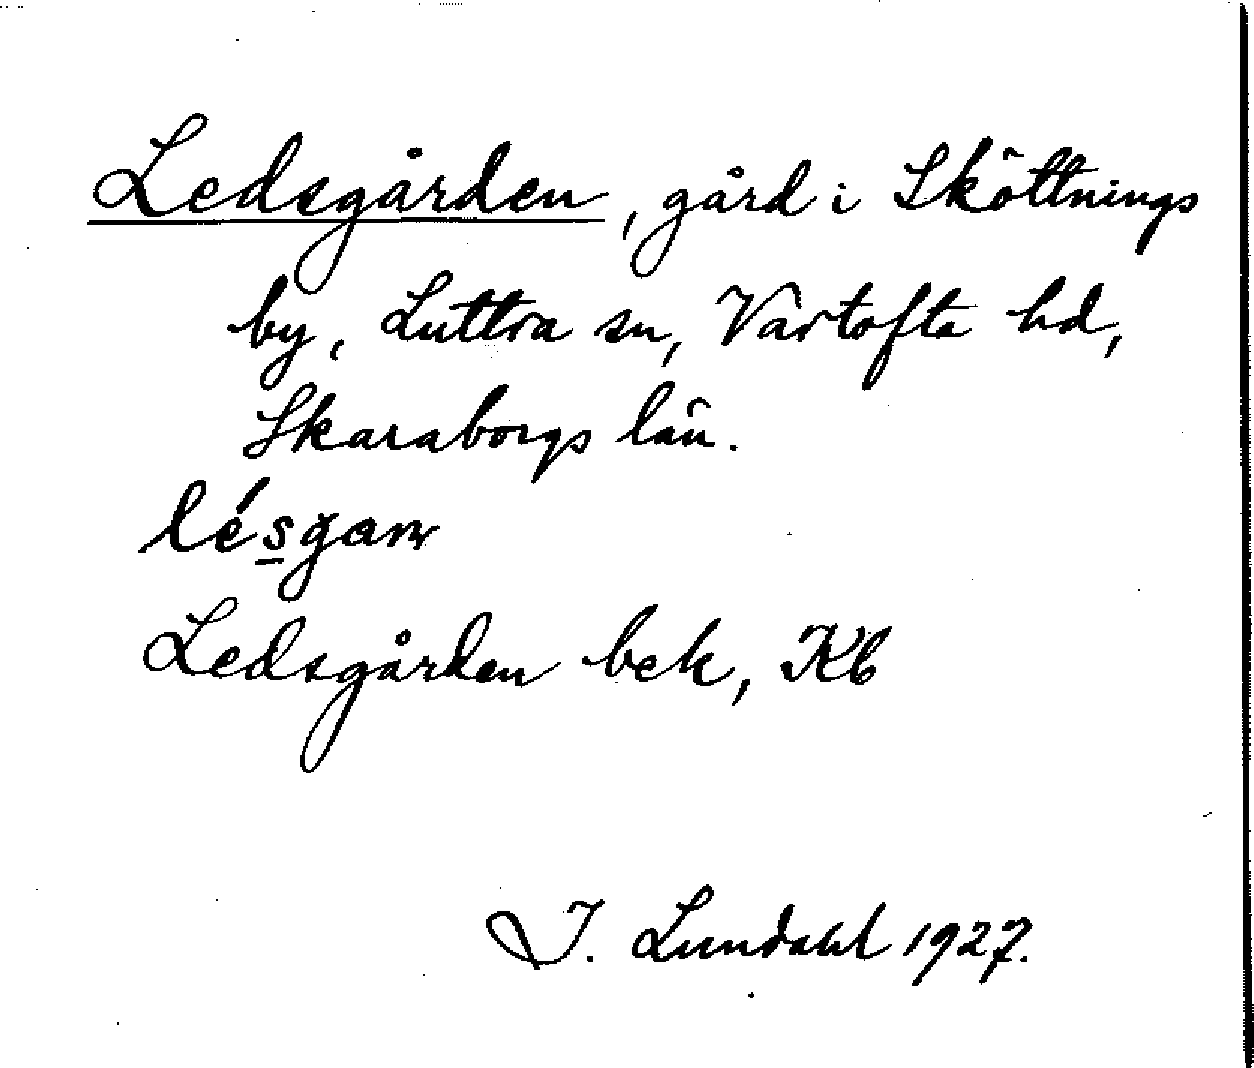 Ledsgården, gård i Sköttnings
by, Luttra sn, Vartofta hd,
Skaraborgs län.
lésgarn
Ledsgården bek, Kb
I. Lundahl 1927.